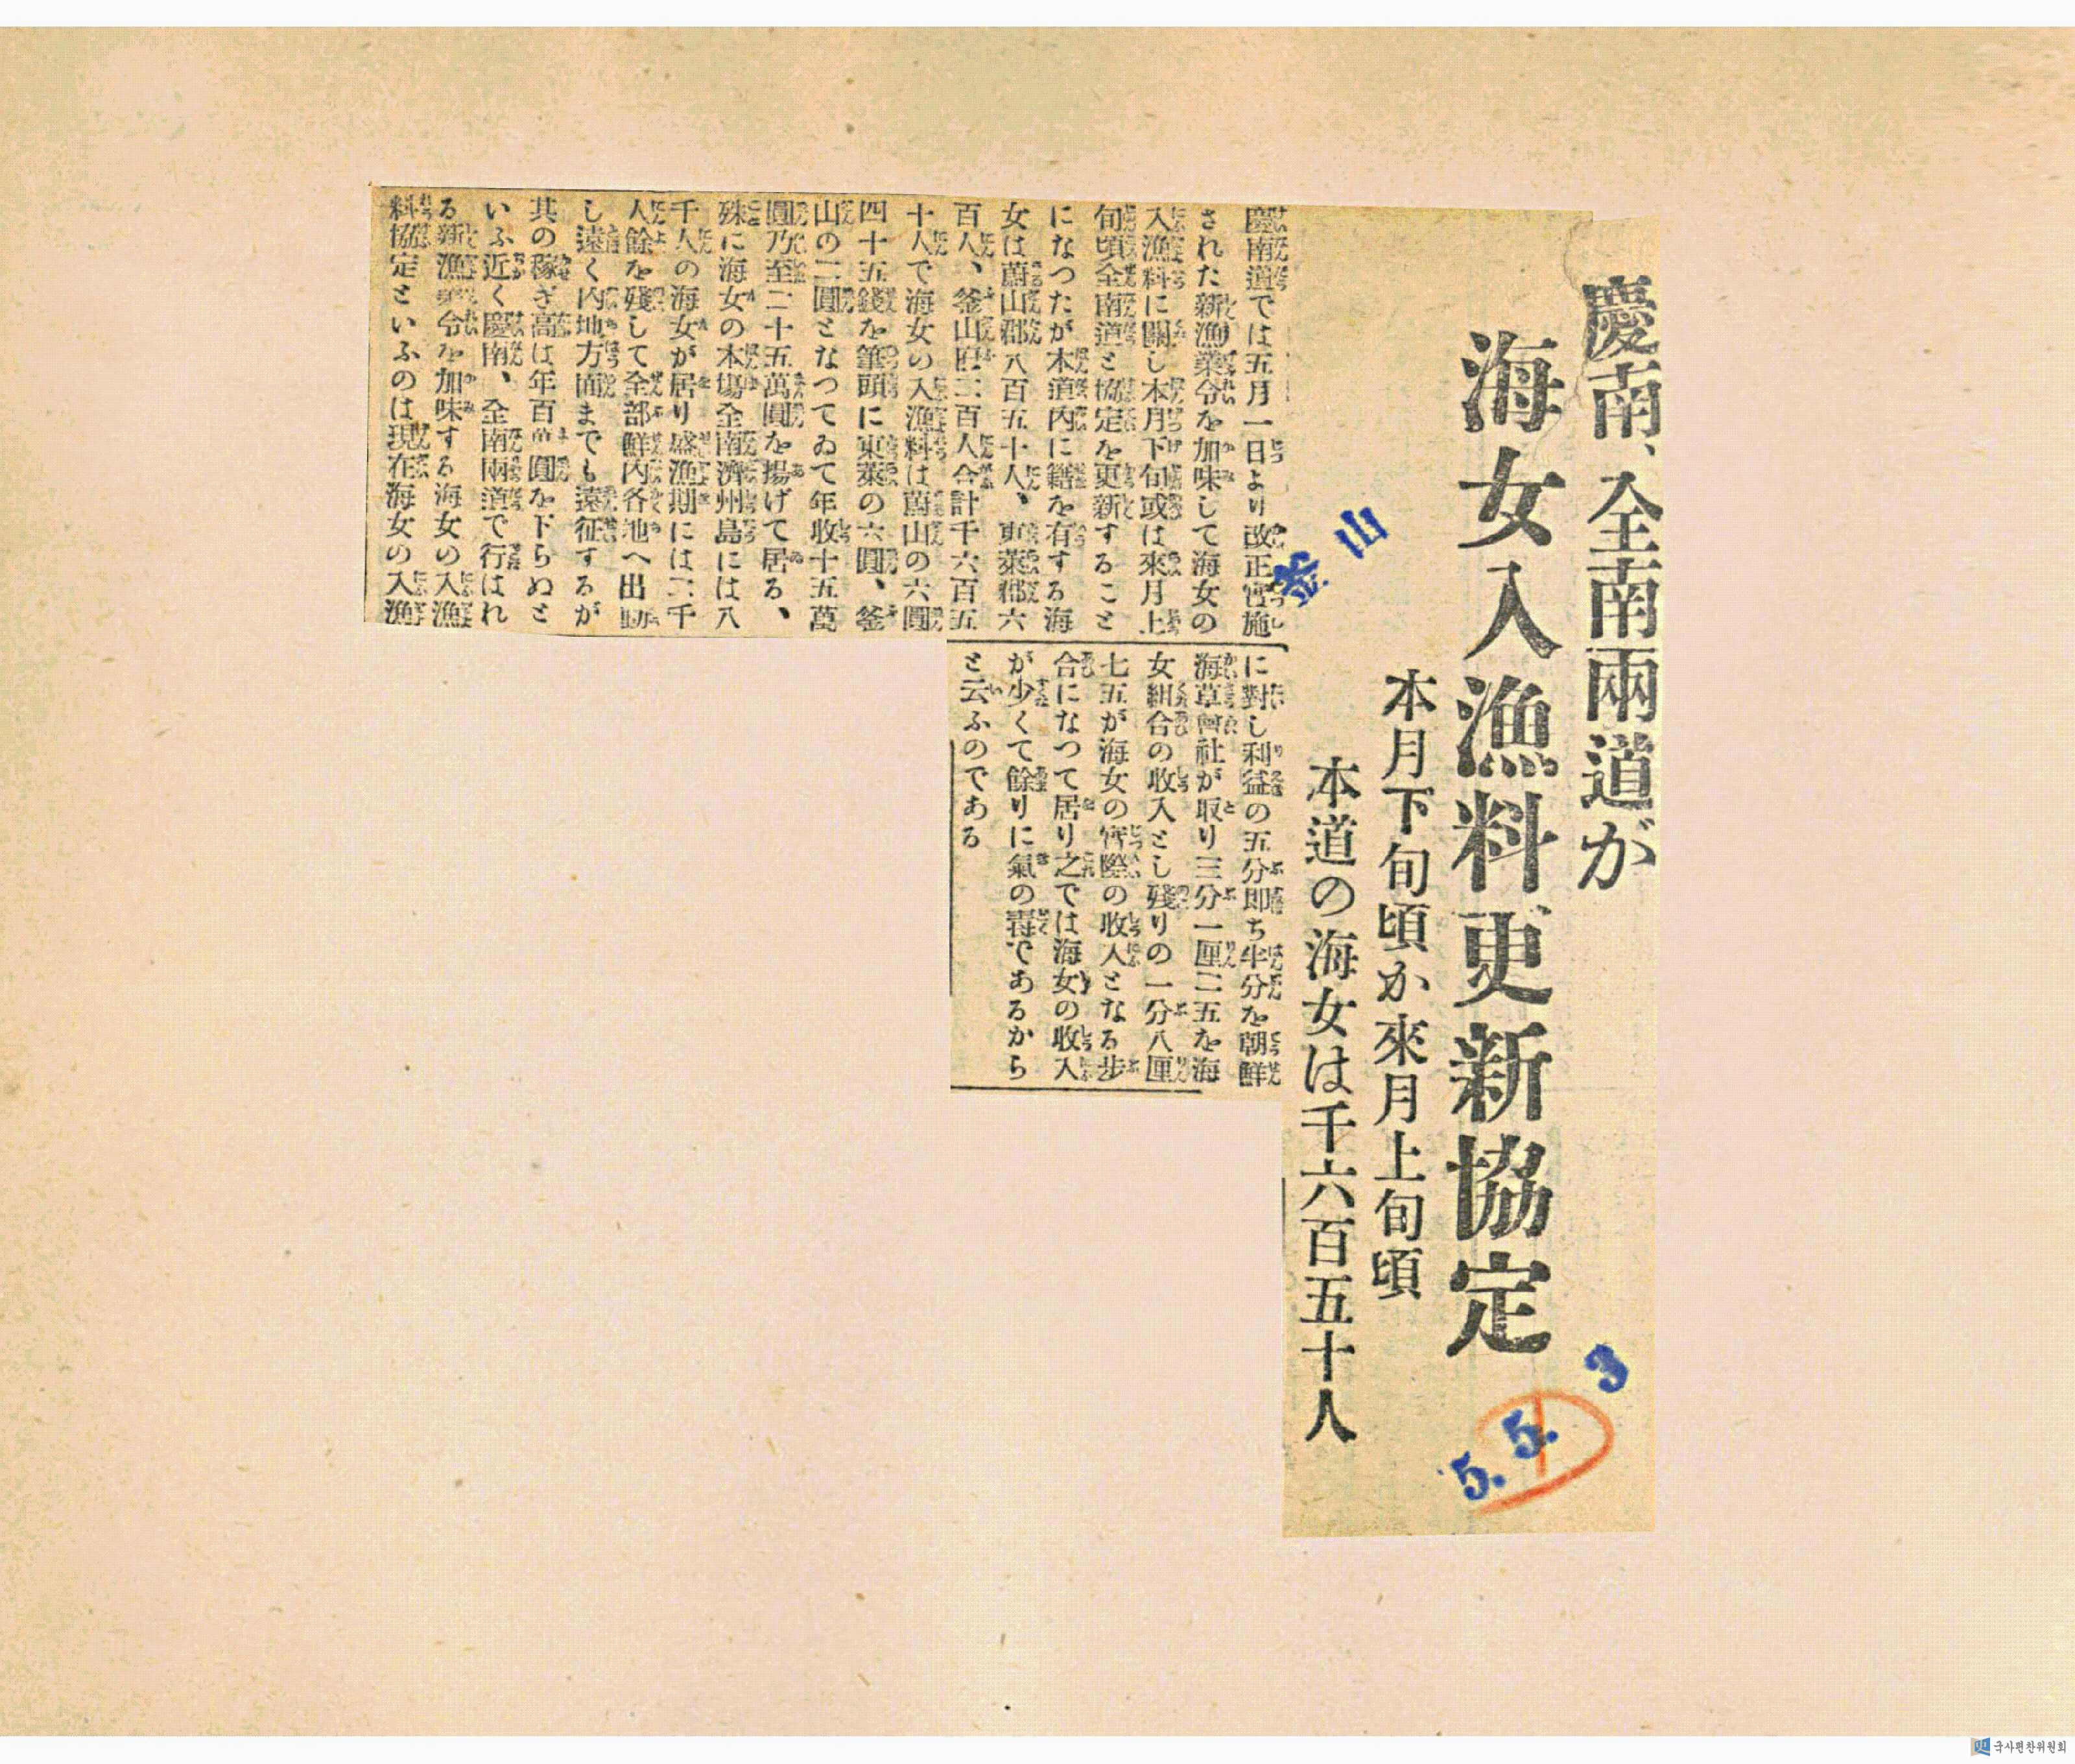 慶南、全南兩道が
海女入漁料更新協定
本月下旬頃か來月上旬頃
本道の海女は千六百五十人
釜山
5.5.3
慶南道では五月一日より改正實施
された新漁業令を加味して海女の
入漁料に關し本月下旬或は來月上
旬頃全南道と協定を更新すること
になつたが本道內に籍を有する海
女は蔚山郡八百五十人、東萊郡六
百人、釜山府二百人合計千六百五
十人で海女の入漁料は蔚山の六圓
四十五錢を筆頭に東萊の六圓、釜
山の二圓となつてゐて年收十五萬
圓乃至二十五萬圓を揚げて居る、
殊に海女の本場全南濟州島には八
千人の海女が居り盛漁期には二千
人餘を殘して全部鮮內各地へ出動
し遠く內地方面までも遠征するが
其の稼ぎ高は年百萬圓を下らぬと
いふ近く慶南、全南兩道で行はれ
る新漁業令を加味する海女の入漁
料協定といふのは現在海女の入漁
に對し利益の五分即ち半分を朝鮮
海草會社が取り三分一厘二五を海
女組合の收入とし殘りの一分八厘
七五が海女の實際の收入となる步
合になつて居り之では海女の收入
が少くて餘りに氣の毒であるから
と云ふのである
국사편찬위원회